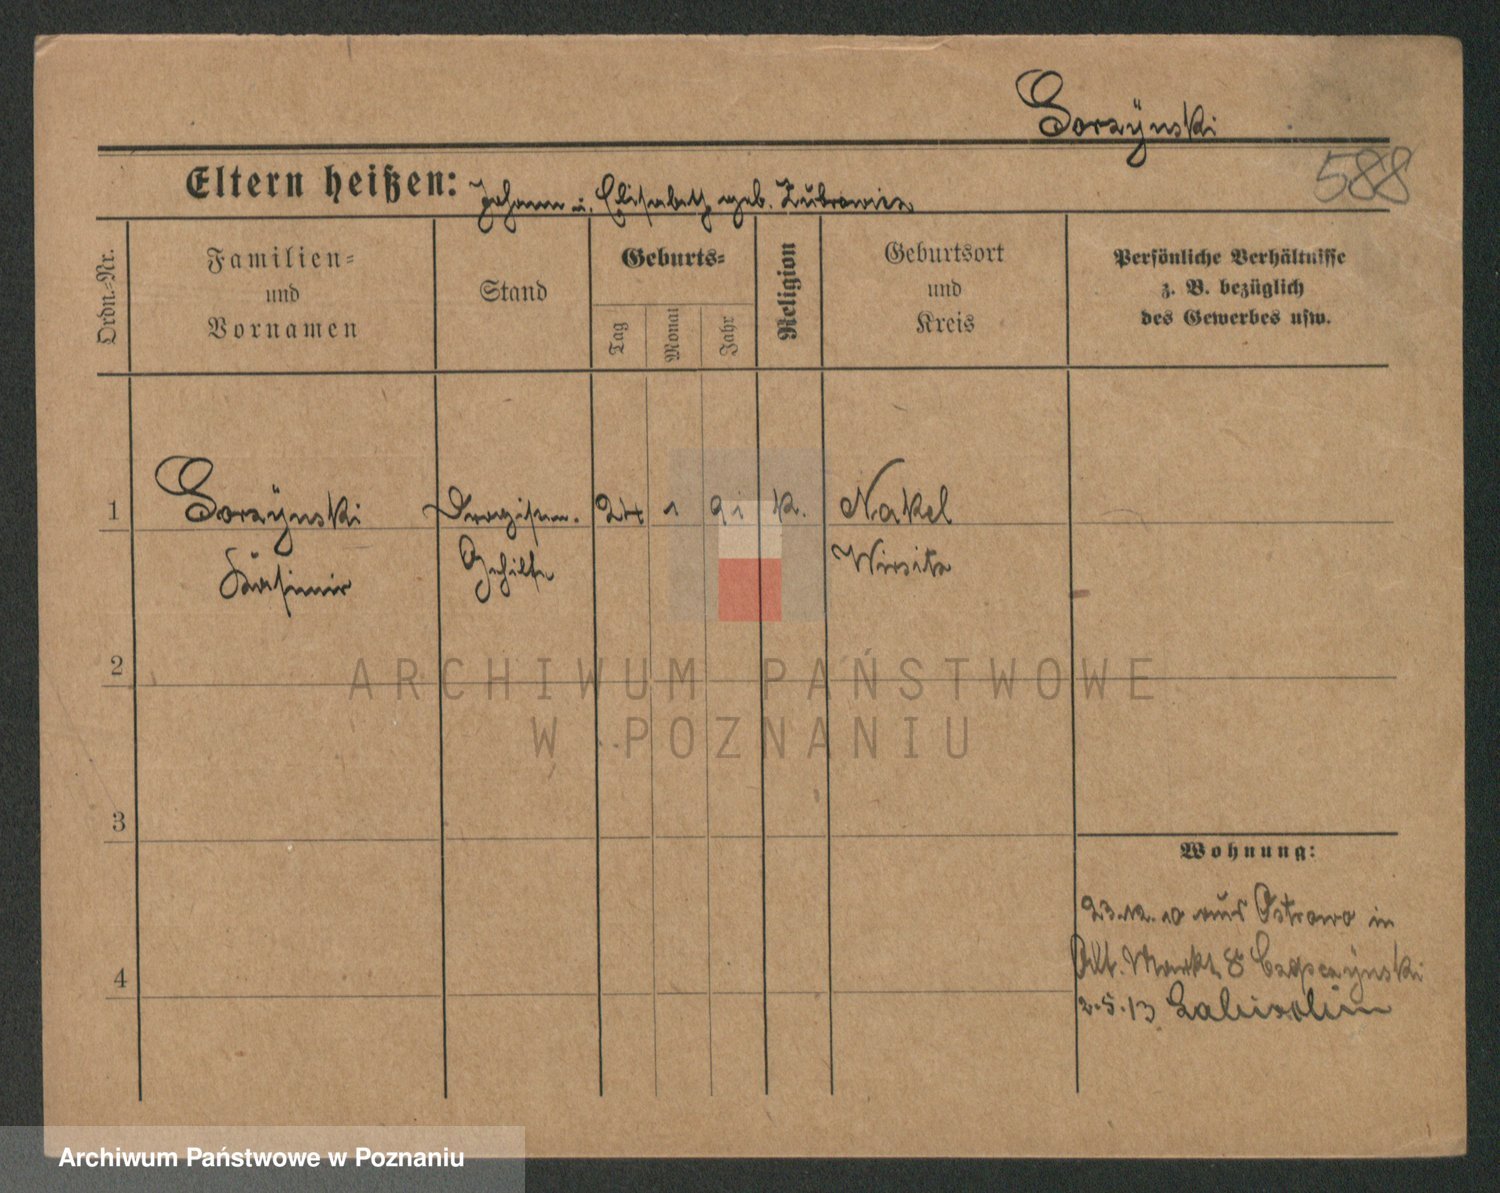 Gorzÿnski
588
Eltern heißen: Johann u. Elisabeth geb. Żubrowicz
Ordn.-Nr.
Familien-
und
Vornamen
Stand
Geburts-
Tag
Monat
Jahr
Religion
Geburtsort
und
Kreis
Persönliche Verhältnisse
z. B. bezüglich
des Gewerbes usw.
1
Gorzÿnski
Kasimir
Drogisten.
Gehilfe
24
1
91
k.
Nakel
Wirsitz
2
3
4
Wohnung:
23.12.10 aus Ostrowo in
Alt. Markt 8
2.5.13
ARCHIWUM PAŃSTWOWE
W POZNANIU
Archiwum Państwowe w Poznaniu